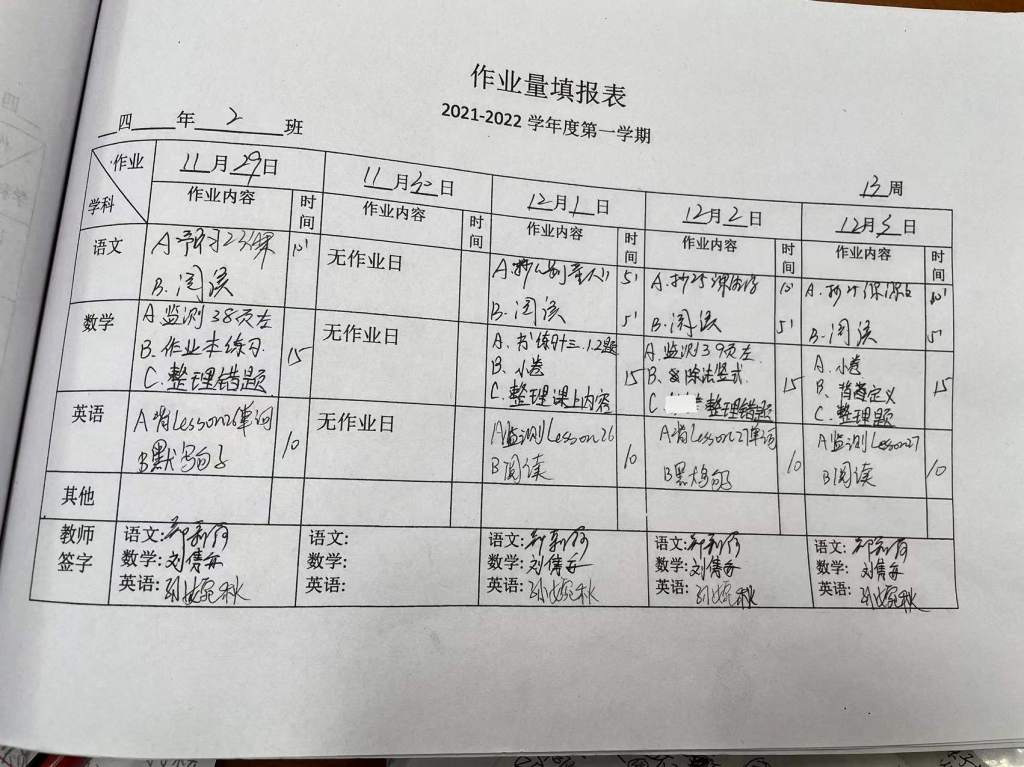 作业量填报表
2021-2022 学年度第一学期
四 年 2 班
13 周
作业
学科
11月29日
11月30日
12月1日
12月2日
12月3日
作业内容 时间 作业内容 时间 作业内容 时间 作业内容 时间 作业内容 时间
语文
A
课 10'
B. 阅读
无作业日
A. 抄
5'
B. 阅读 5'
A. 抄25课
10'
B. 阅读 5'
A. 抄
课
10'
B. 阅读 5'
数学
A. 监测38页左
B. 作业本练习.
C. 整理错题
15
无作业日
A. 书练习十三.1.2题
B. 小卷
C. 整理课上内容
15
A. 监测39页左.
B. 除法竖式.
C. 整理错题
15
A. 小卷
B. 背 定义
C. 整理题
15
英语
A背Lesson26单词
B默写句子
10
无作业日
A监测Lesson26
B阅读
10
A背Lesson27单词
B默写句子
10
A监测Lesson27
B阅读
10
其他
教师
签字
语文:
数学: 刘倩
英语: 孙婉秋
语文:
数学:
英语:
语文:
数学: 刘倩
英语: 孙婉秋
语文:
数学: 刘倩
英语: 孙婉秋
语文:
数学: 刘倩
英语: 孙婉秋